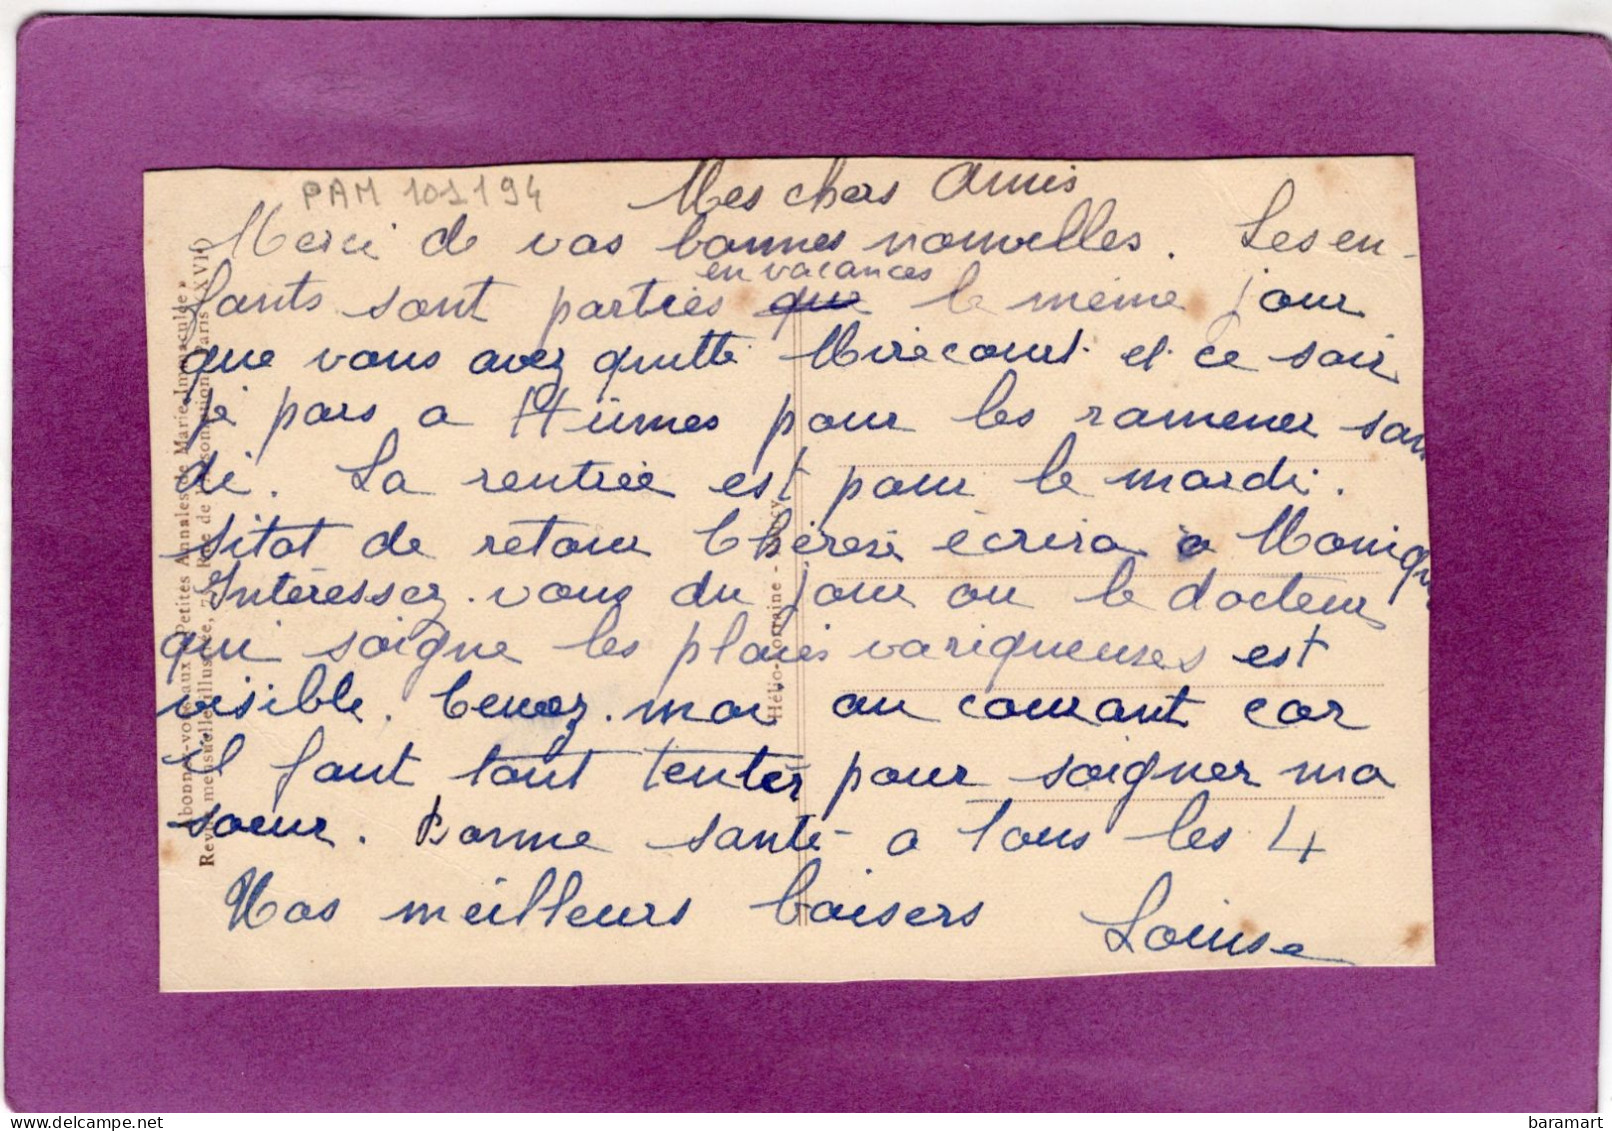 PAM 101194
Mes chers Amis
Merci de vos bonnes nouvelles. Les en-
en vacances
fants sont parties que le même jour
que vous avez quitté Mirecourt et ce soir
je pars a Hûmes pour les ramener sam
di. La rentrée est pour le mardi.
Sitot de retour Thérèse écrira a Moniqu
Intéressez-vous du jour ou le docteur
qui soigne les plaies variqueuses est
visible. Tenez-moi au courant car
il faut tout tenter pour soigner ma
sœur. Bonne santé a tous les 4
Nos meilleurs baisers Louise
Abonnez-vous aux « Petites Annales de Marie Immaculée »
Revue mensuelle illustrée, Rue de l'Assomption, Paris (XVI)
Hélio-Lorraine - Nancy
baramart